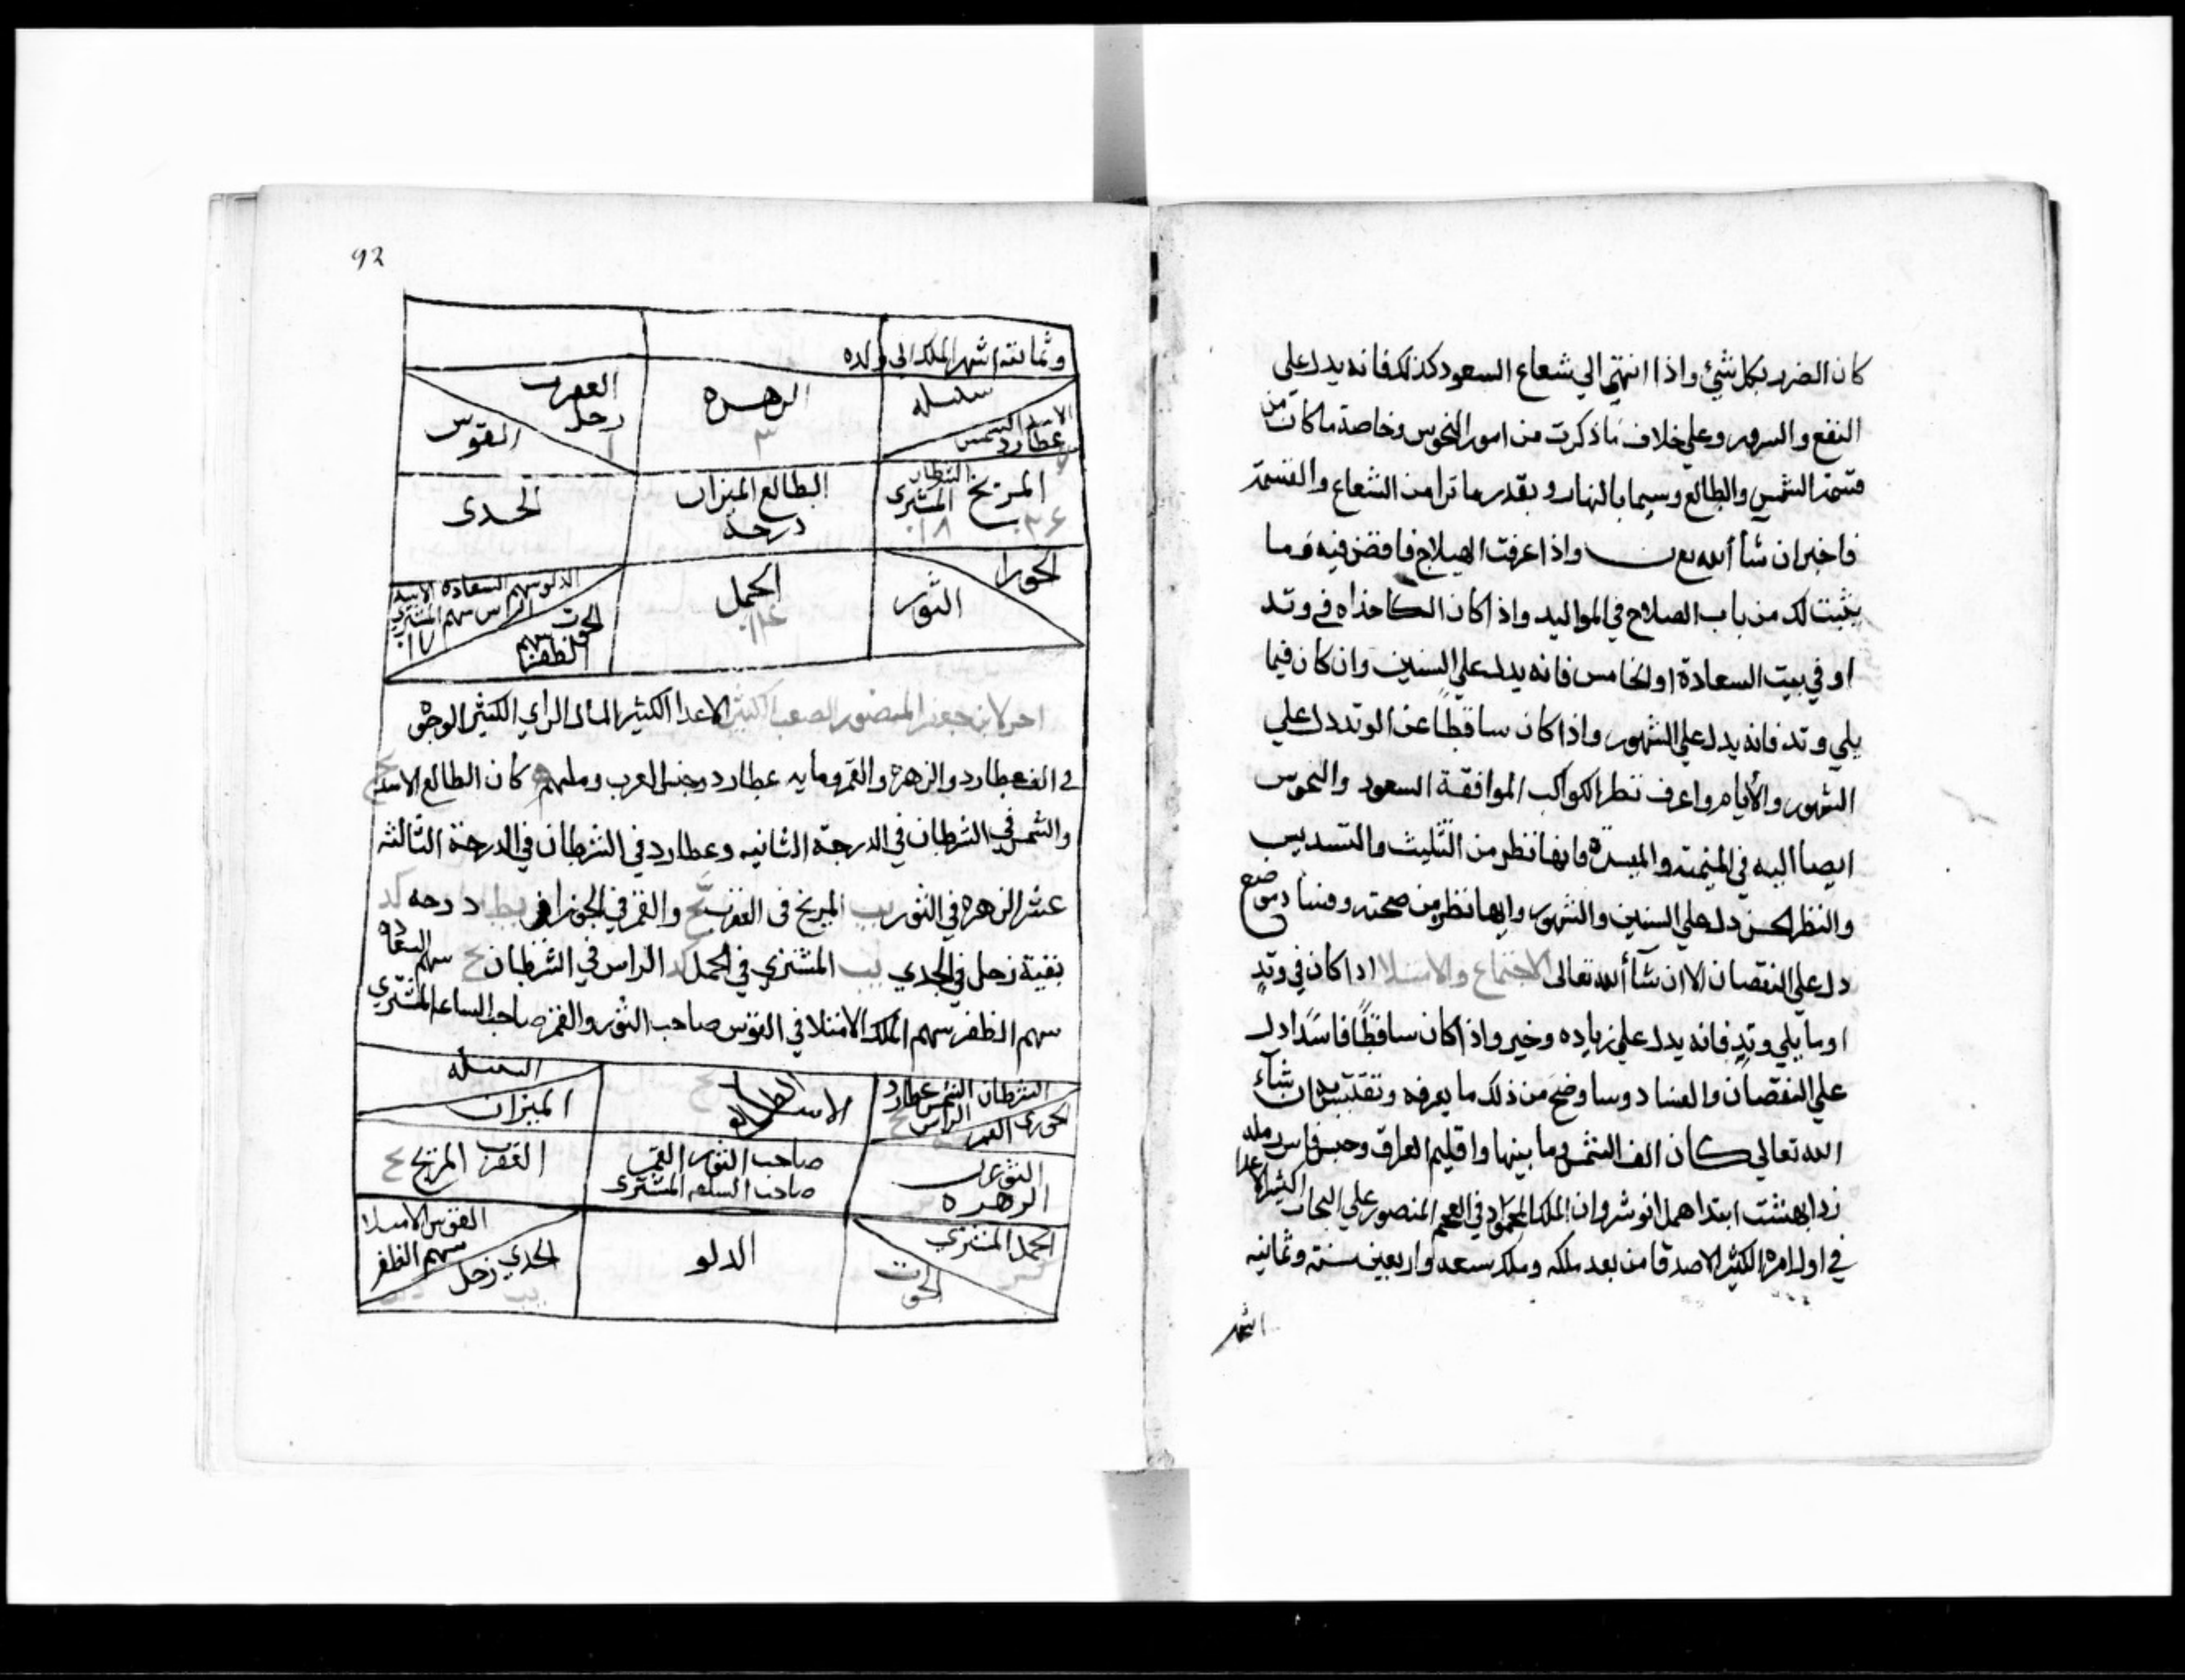 كان الضرر بكل شئ واذا انتهى الي شعاع السعود كذلك فانه يدل على
النفع والسرور وعلي خلاف ما ذكرت من امور النحوس وخاصة ما كان من
قسمة الشمس والطالع وسيما بالنهار وبقدر ما ترا من الشعاع والقسمة
فاخبر ان شا الله واذا عرفت الهيلاج فاقض فيه فما
يثبت لك من باب الصلاح في المواليد واذا كان الكاخذاه في وتد
او في بيت السعادة او الخامس فانه يدل علي السنين وان كان فيما
يلي وتد فانه يدل علي الشهور واذا كان ساقطا عن الوتد دل علي
الشهور والأيام واعرف نظر الكواكب الموافقة السعود والنحوس
ايضا اليه في الميمنة والميسرة وانها نظر من التثليث والتسديس
والنظر الحسن دل علي السنين والشهور وايها نظر من وفسا د موضع
دل علي النقصان الا ان شآ الله تعالى الاجتماع والامتلا اذا كان في وتدٍ
او ما يلي وتدٍ فانه يدل علي زياده وخير واذا كان ساقطًا فاسدًا دل
علي النقصان والفساد وسا وضح من ذلك ما يعرفه ان شآء
الله تعالي كان الف الشمس وما بينها واقليم العراق
ابتدا انوشروان الملك المحمود في العجم المنصور علي الكثير الاعدا
في اول امره الكثير الاصدقا من بعد ملكه وملك سبعه واربعين سنة وثمانيه
اشهر
92
وثمانية اشهر الملك الى ولده
سنبله
الاسد الشمس
عطارد
الزهره
٣
العقرب
زحل
القوس
السرطان
المريخ المشتري
١٨
الطالع الميزان
درجة
الجدى
الجوزا
الثور
الحمل
الدلو سهم السعاده
الراس سهم المشتري
الحوت
سهم الظفر
جعفر المنصور الصعب الكثير الاعدا الكثير المال الراي الكثير الوجوه
في الف عطارد والزهرة والقمر وما به عطارد وجنس العرب كان الطالع الاسد
والشمس في السرطان في الدرجة الثانيه وعطارد في السرطان في الدرجة الثالثة
عشر الزهرة في الثور يب المريخ في العقرب والقمر في الجوزا في درجه كد
بقية زحل في الجدي يب المشتري في الحمل كد الراس في السرطان سهم السعاده
سهم الظفر سهم الملك الامتلا في القوس صاحب الثور والقمر صاحب الساعه المشتري
السرطان الشمس عطارد
الراس
الجوزى القمر
الاسد الطالع
السنبله
الميزان
الثور
الزهره
صاحب الثور القمر
صاحب الساعه المشترى
العقرب المريخ
الحمل المشتري
الحوت
الدلو
القوس الامتلا
سهم الظفر
الجدي زحل
يب